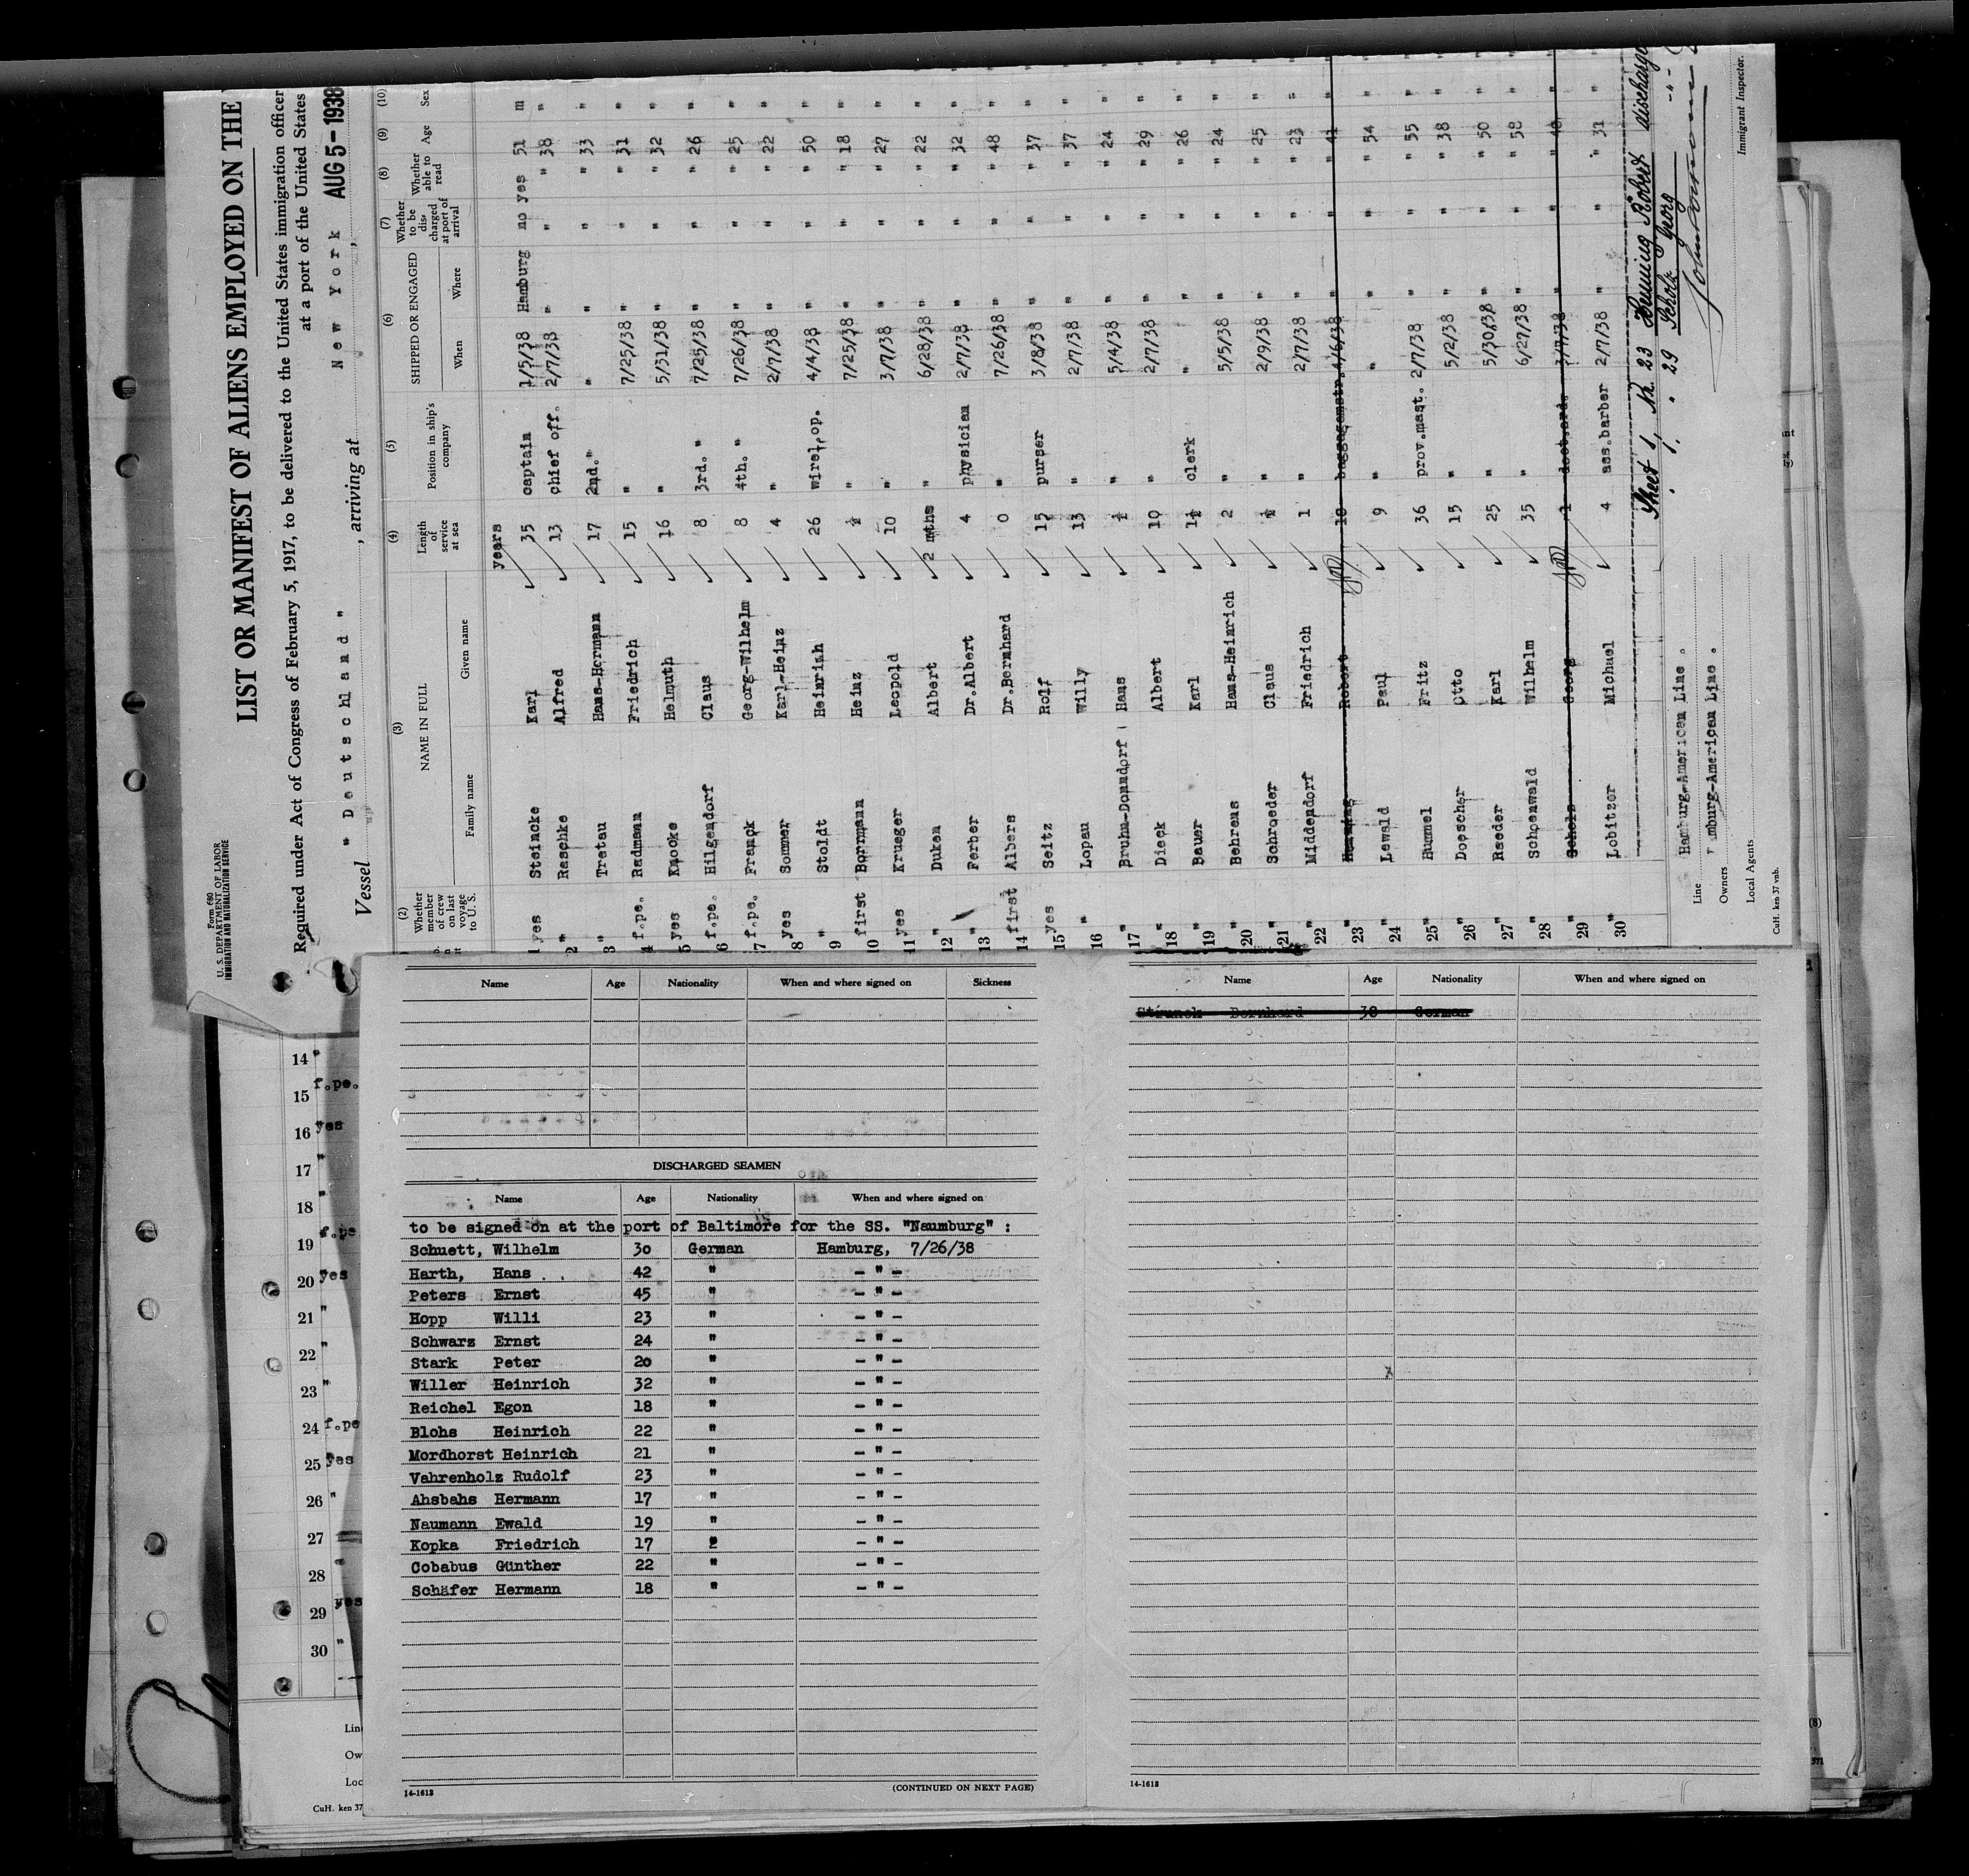 Form 680
U. S. DEPARTMENT OF LABOR
IMMIGRATION AND NATURALIZATION SERVICE
LIST OR MANIFEST OF ALIENS EMPLOYED ON THE
Required under Act of Congress of February 5, 1917, to be delivered to the United States immigration officer
at a port of the United States
Vessel " Deutschland " , arriving at New York , AUG 5-1938
(2) Whether member of crew on last voyage to U. S. (3) NAME IN FULL Family name Given name (4) Length of service at sea (5) Position in ship's company (6) SHIPPED OR ENGAGED When Where (7) Whether to be discharged at port of arrival (8) Whether able to read (9) Age (10) Sex
years
1 yes Steincke Karl 35 captain 1/5/38 Hamburg no yes 51 m
2 " Raschke Alfred 13 chief off. 2/7/38 " " " 38 "
3 " Tretau Hans-Hermann 17 2nd." " " " " 33 "
4 f.pe. Radmann Friedrich 15 " 7/25/38 " " " 31 "
5 yes Knocke Helmuth 16 " 5/31/38 " " " 32 "
6 f.pe. Hilgendorf Claus 8 3rd. " 7/25/38 " " " 26 "
7 f.pe. Franck Georg-Wilhelm 8 4th. " 7/26/38 " " " 25 "
8 yes Sommer Karl-Heinz 4 " 2/7/38 " " " 22 "
9 " Stoldt Heinrich 26 wirel.op. 4/4/38 " " " 50 "
10 first Borrmann Heinz ½ " 7/25/38 " " " 18 "
11 yes Krueger Leopold 10 " 3/7/38 " " " 27 "
12 " Duken Albert 2 mths " 6/28/38 " " " 22 "
13 " Ferber Dr.Albert 4 physician 2/7/38 " " " 32 "
14 first Albers Dr.Bernhard 0 " 7/26/38 " " " 48 "
15 yes Seitz Rolf 15 purser 3/8/38 " " " 37 "
16 " Lopau Willy 13 " 2/7/38 " " " 37 "
17 " Bruhn-Donndorf Hans ½ " 5/4/38 " " " 24 "
18 " Dieck Albert 10 " 2/7/38 " " " 29 "
19 " Bauer Karl 1½ clerk " " " " 26 "
20 " Behrens Hans-Heinrich 2 " 5/5/38 " " " 24 "
21 " Schroeder Claus ½ " 2/9/38 " " " 25 "
22 " Middendorf Friedrich 1 " 2/7/38 " " " 23 "
23 " Henning Robert 10 baggagemstr. 4/6/38 " " " 41 "
24 " Lewald Paul 9 " " " " " 54 "
25 " Hummel Fritz 36 prov.mast. 2/7/38 " " " 55 "
26 " Doescher Otto 15 " 5/2/38 " " " 38 "
27 " Raeder Karl 25 " 5/30/38 " " " 50 "
28 " Schoenwald Wilhelm 35 " 6/27/38 " " " 58 "
29 " Scholz Georg 1 3/7/38 " " " "
30 " Lobitzer Michael 4 ass.barber 2/7/38 " " " 31 "
Sheet 1, Nr. 23 Henning Robert discharge
" 1, " 29 Scholz Georg -"-
Line Hamburg-American Line .
Owners mburg-American Line .
Local Agents
Immigrant Inspector.
CuH. ken 37 vnb.
14 "
15 f.pe.
16 yes
17 "
18 "
19 f.pe
20 yes
21 "
22 "
23 "
24 f.pe
25 yes
26 "
27
28 "
29 yes
30 "
Lin
Ow
Loc
CuH. ken 37
Name Age Nationality When and where signed on Sickness
DISCHARGED SEAMEN
Name Age Nationality When and where signed on
to be signed on at the port of Baltimore for the SS. "Naumburg" :
Schuett, Wilhelm 30 German Hamburg, 7/26/38
Harth, Hans 42 " - " -
Peters Ernst 45 " - " -
Hopp Willi 23 " - " -
Schwarz Ernst 24 " - " -
Stark Peter 20 " - " -
Willer Heinrich 32 " - " -
Reichel Egon 18 " - " -
Blohs Heinrich 22 " - " -
Mordhorst Heinrich 21 " - " -
Vahrenholz Rudolf 23 " - " -
Ahsbahs Hermann 17 " - " -
Naumann Ewald 19 " - " -
Kopka Friedrich 17 " - " -
Cobabus Günther 22 " - " -
Schäfer Hermann 18 " - " -
14-1613 (CONTINUED ON NEXT PAGE)
Name Age Nationality When and where signed on
Strunck Bernhard 38 German
14-1613
(8)
571